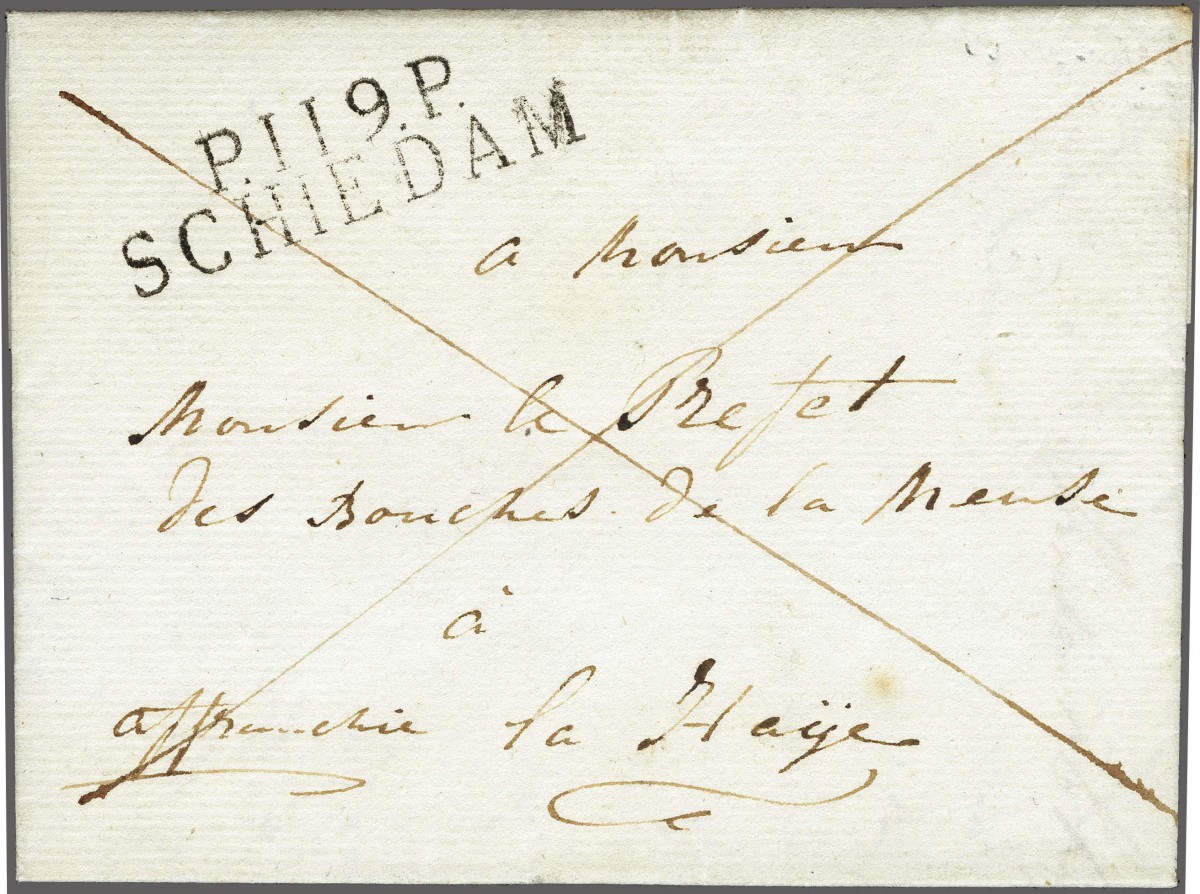 P.119.P.
SCHIEDAM
a Monsieur
Monsieur le Prefet
des Bouches de la Meuse
à
affranchie la Haije